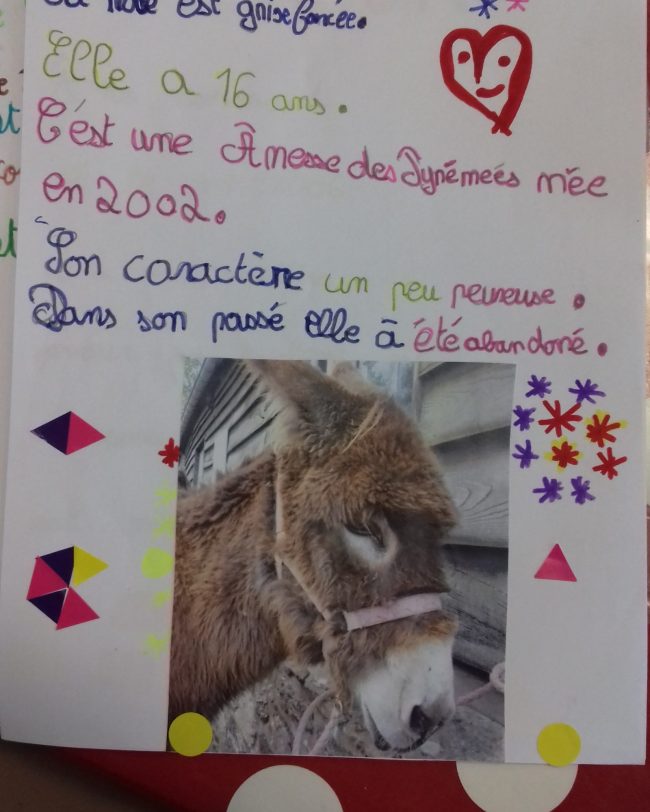 est grise foncée.
Elle a 16 ans.
C'est une Ânesse des Pyrémées mée
en 2002.
Son caractère un peu peureuse.
Dans son passé elle à été abandoné.